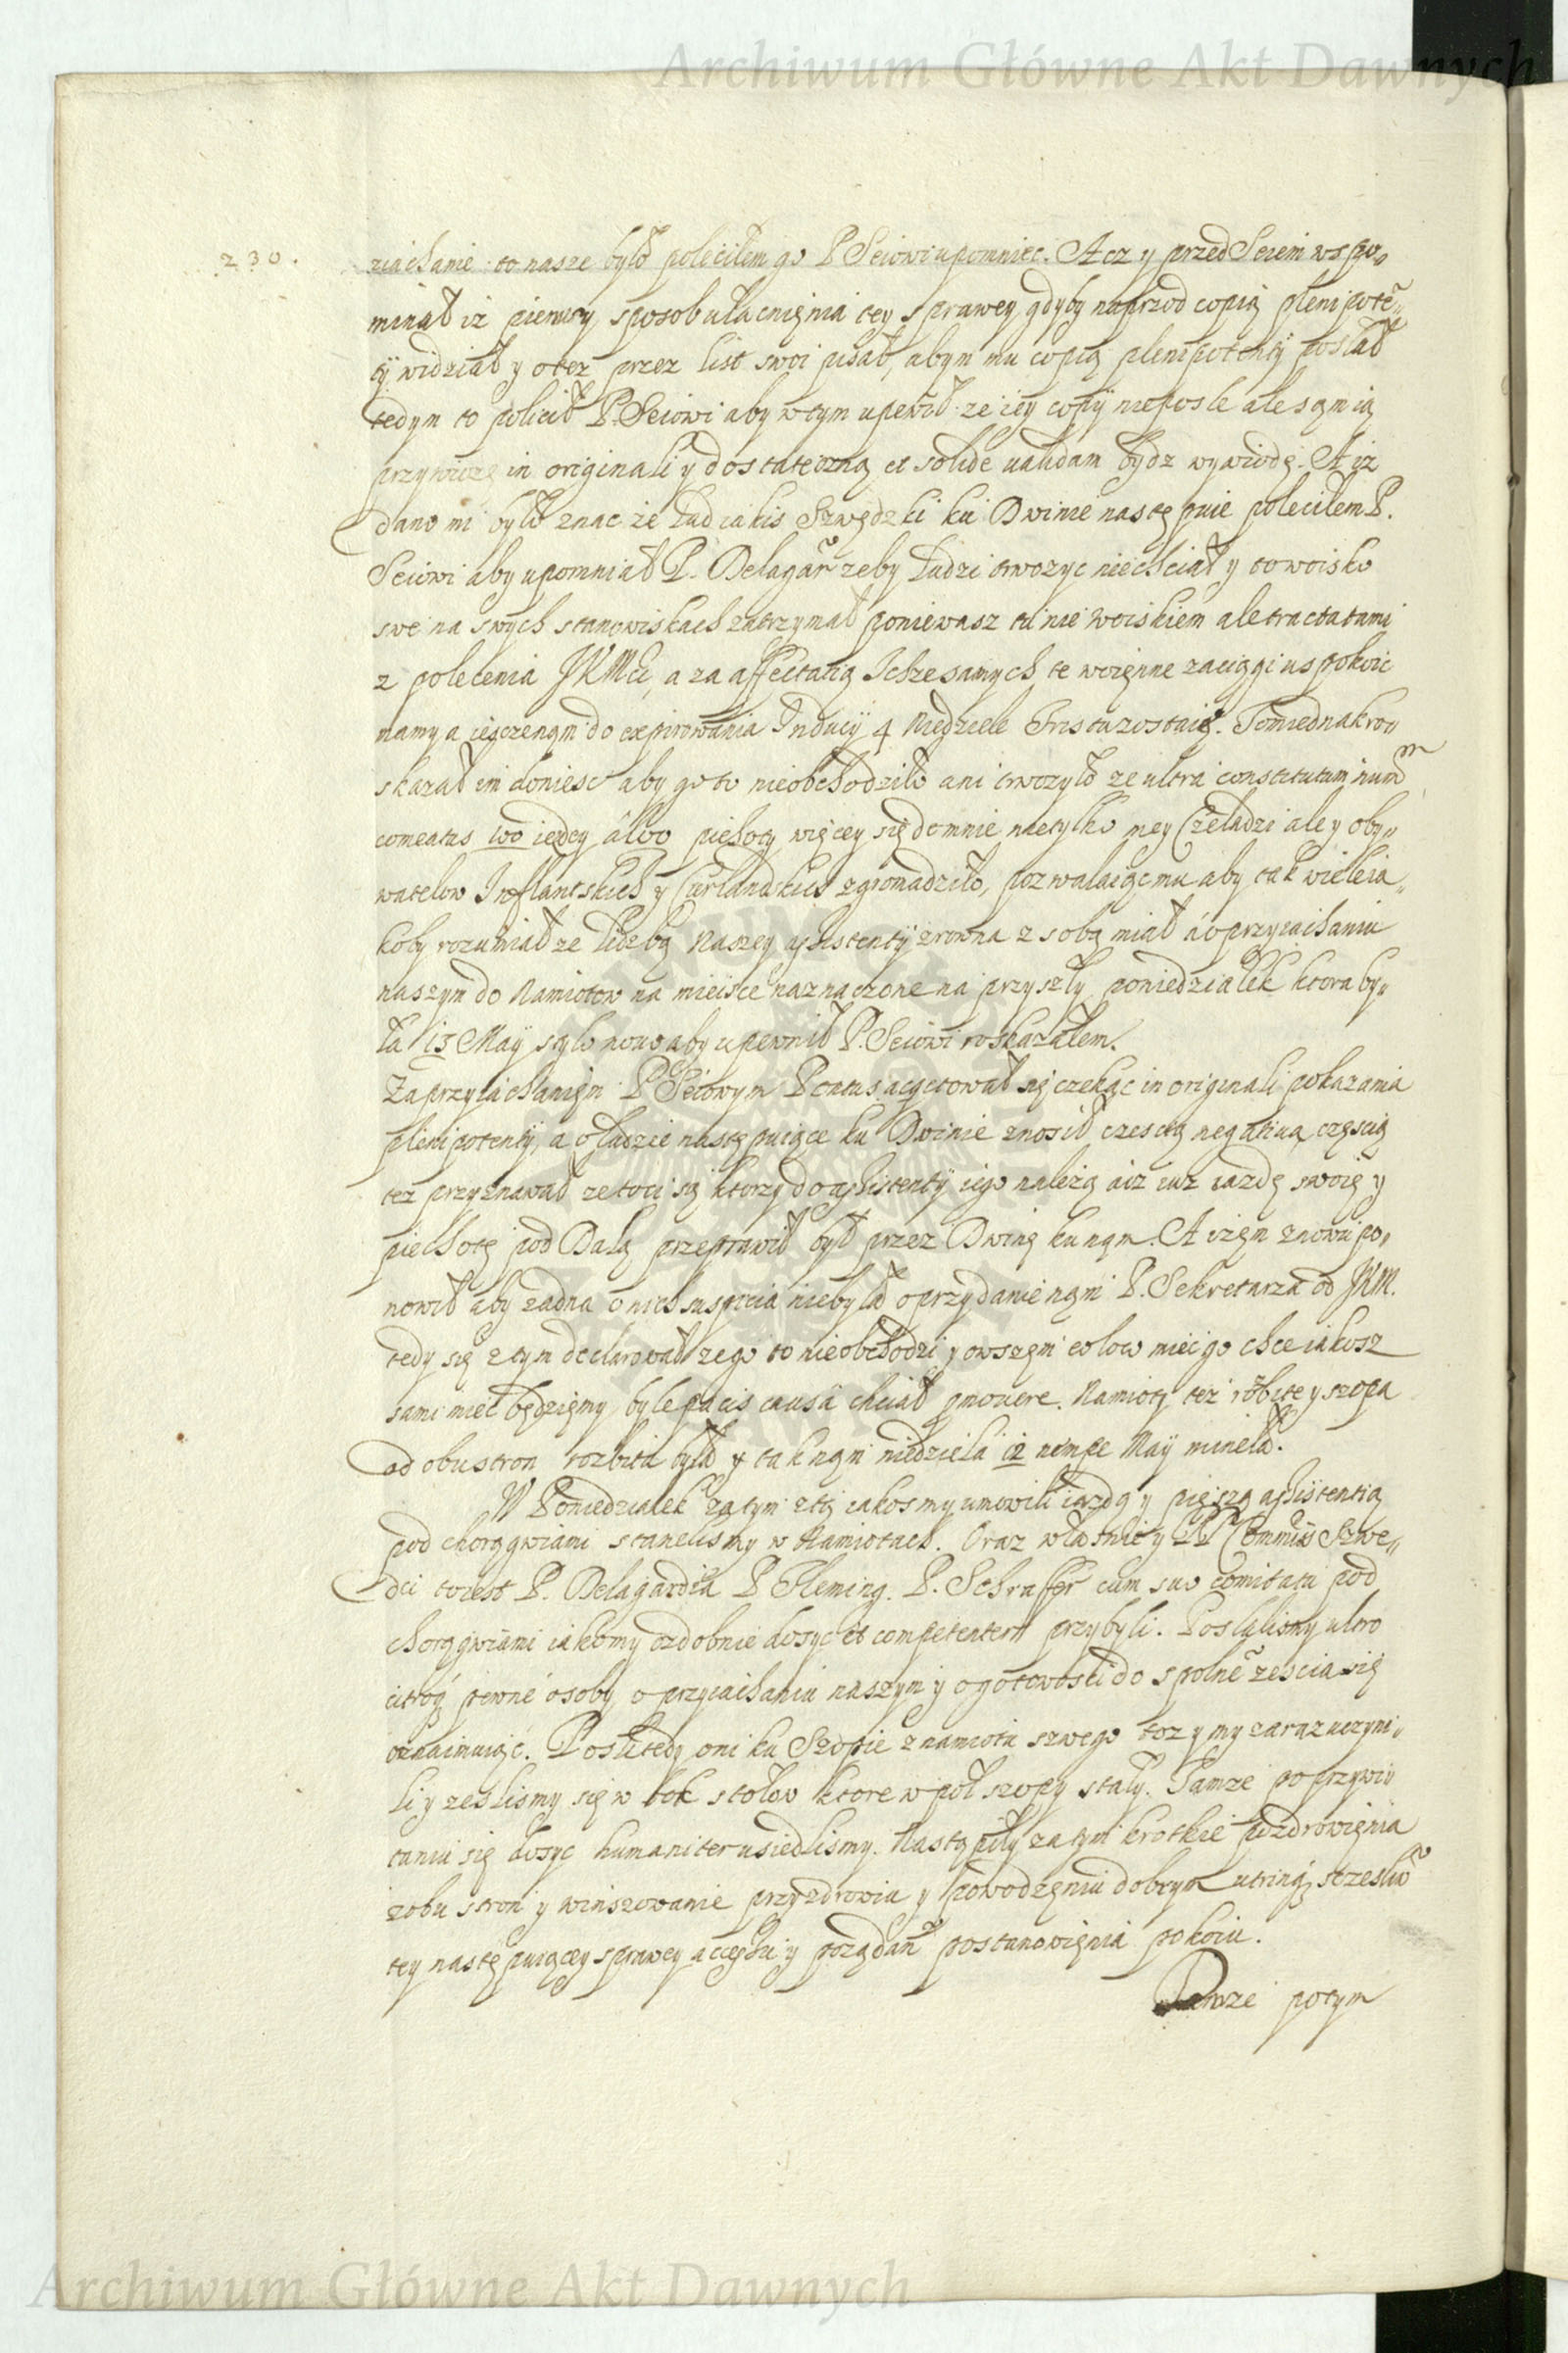 Archiwum Główne Akt Dawnych
230.
ziachanie to nasze było poleciłem go P Seiowi upomniec. A cz y przed Seiem wspo„
minał iz pierwszy sposob ułacnięnia tey sprawey gdyby naprzod copią plenipotẽ„
ty widział y otez przez list swoi pisał, abym mu copią plenipotenty posłał
tedym to policił P. Seiowi aby wtym upewił ze iey copÿ nieposle ale sąm ią
przywiozę in originali y dostateczną et solide ualidam bydz wywiodę. A iz
dano mi było znac że Lud iakis Szwędzki ku Dwinie nastę puie poleciłem P.
Seiowi aby upomniał P. Delagar̃ zeby Ludzi trwozyc niechciał y to woisko
swe na swych stanowiskach zatrzymał poniewasz tu nie woiskiem ale tractatami
z polecenia JKMci, a za affectatią Ichze samych te woięnne zaciągi uspokoic
mamy a ięsczenąm do expirowania Inducÿ 4 Niedziele Trista zostaię. Tomiednak ro„
skazał im doniesc aby go to nieobchodziło ani trwozyło ze ultra constitutum num̃
comeatus 100 iezdcy álbo piehoty więcey się do mnie nie tylko mey Czeladzi ale y oby„
watelow Inflantskich y Curlandskich zgromadziło, pozwalaiąc mu aby tak wiele ia„
koby rozumiał ze liczbą Naszey assistentÿ zrowna z sobą miał á o przyiachaniu
naszym do Namiotow na mieisce naznaczone na przyszły poniedziałek ktora by„
ła 13 Maÿ stylo nouo aby upewnił P. Seiowi roskazałem.
Za przyiachanięm P Seiowym Pontus acqietował się czekąc in originali pokazania
plenipotenty, a o ludzie nastę puiące ku Dwinie znosił czescią negatiuą częscią
tez przyznawał ze toci są ktorzy do assistentÿ iego należą á iz iuz iazdę swoię y
piechotę pod Dalą przeprawił był przez Dwinę ku nąm. A izęm znowu po„
nowił aby żadna o nich suspicia niebyła o przydanie nąm P. Sekretarza od JKM.
tedy się z tym declarował ze go to nieobchodzi y owszęm co low mieć go chce iakosz
sami miec będzięmy byle pacis causã chciał p̱mouere. Namioty też rozbite y szopa
od obu stron rozbita była y tak nąm niedziela 12 nempe Maÿ mineła.
W Poniedziałek zatym z tą iakosmy umowili iazdą y pieszą assistentią
pod chorągwiami stanelismy w Namiotach. Oraz własnie y PP Com̃misÿ Szwe„
dci toiest P. Delagardia P Fleming. P. Schraffer cum suo comitatu pod
chorągwiami iakomy ozdobnie dosyc et competenter przybyli. Posłalismy ultro
citroq̃ pewne osoby o przyiachaniu naszym y o gotowosci do spolne͠ zescia się
oznaimuiąc. Posli tedy oni ku Szopie z namiotu szwego toz y my zaraz uczyni„
li y zeslismy się w bok stołow ktore w poł szopy stały. Tamze po przywi„
taniu się dosyc humaniter usiedlismy. Nastąpiły zatym krotkie pozdrowięnia
z obu stron y winszowanie przy zdrowiu y powodzęniu dobrym utrinq̃ szczesliwe͠
tey nastę puiącey sprawey accessu y pożądan͠ postanowięnia pokoiu.
Tamze potym
Archiwum Główne Akt Dawnych